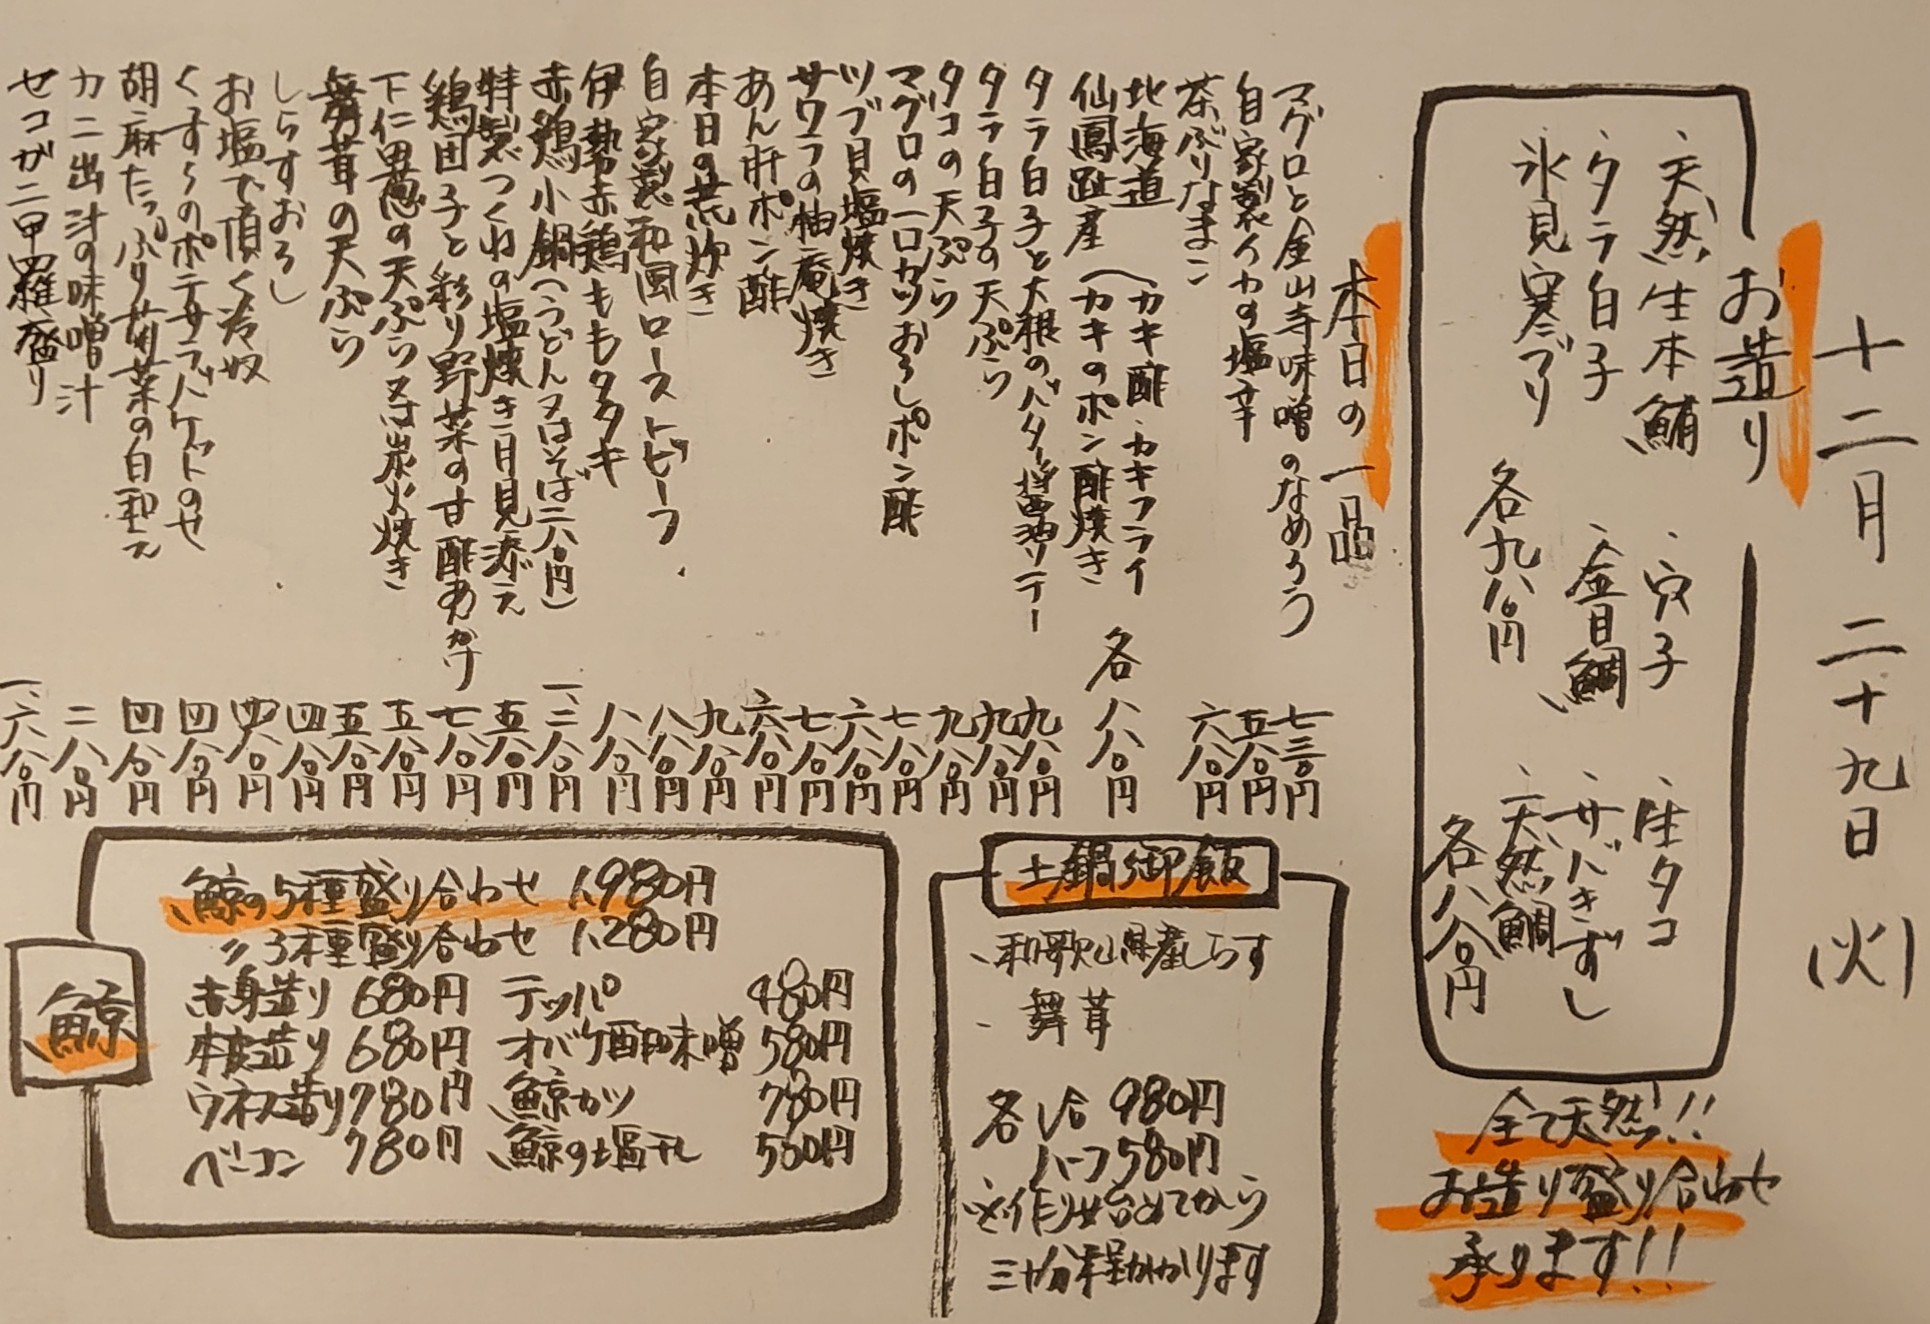 十二月二十九日(火)
お造り
、天然生本鮪
、タラ白子
、氷見寒ブリ
各九八〇円
、穴子
、金目鯛
各八八〇円
、生タコ
、サバきずし
、天然鯛
全て天然!!
お造り盛り合わせ
承ります!!
本日の一品
マグロと金山寺味噌のなめろう 七三〇円
自家製イカの塩辛 五八〇円
茶ぶりなまこ 六八〇円
北海道
仙鳳趾産
(カキ酢・カキフライ
(カキのポン酢焼き
各 八八〇円
タラ白子と大根のバター醤油ソテー 九八〇円
タラ白子の天ぷら 九八〇円
タコの天ぷら 九八〇円
マグロの一口カツおろしポン酢 七八〇円
ツブ貝塩焼き 六八〇円
サワラの柚庵焼き 七八〇円
あん肝ポン酢 六八〇円
本日の荒炊き 九八〇円
自家製和風ローストビーフ 八八〇円
伊勢赤鶏ももタタキ 八八〇円
赤鶏小鍋(うどん又はそば二八〇円) 一、二八〇円
特製つくねの塩焼き月見添え 五八〇円
鶏団子と彩り野菜の甘酢あんかけ 七八〇円
下仁田葱の天ぷら又は炭火焼き 五八〇円
舞茸の天ぷら 五八〇円
しらすおろし 四八〇円
お塩で頂く冷奴 四八〇円
くずし豆のポテサラバケットのせ 四八〇円
胡麻たっぷり菊菜の白和え 四八〇円
カニ出汁の味噌汁 二八〇円
セコガニ甲羅盛り 一、六八〇円
土鍋御飯
、和歌山県産しらす
、舞茸
各 1合 980円
ハーフ 580円
※作り始めてから
三十分程かかります
鯨
鯨の5種盛り合わせ 1,980円
〃 3種盛り合わせ 1,280円
赤身造り 680円 テッパ 480円
本皮造り 680円 オバケ酢味噌 580円
ウネス造り 780円 鯨カツ 780円
ベーコン 780円 鯨の塩干し 500円